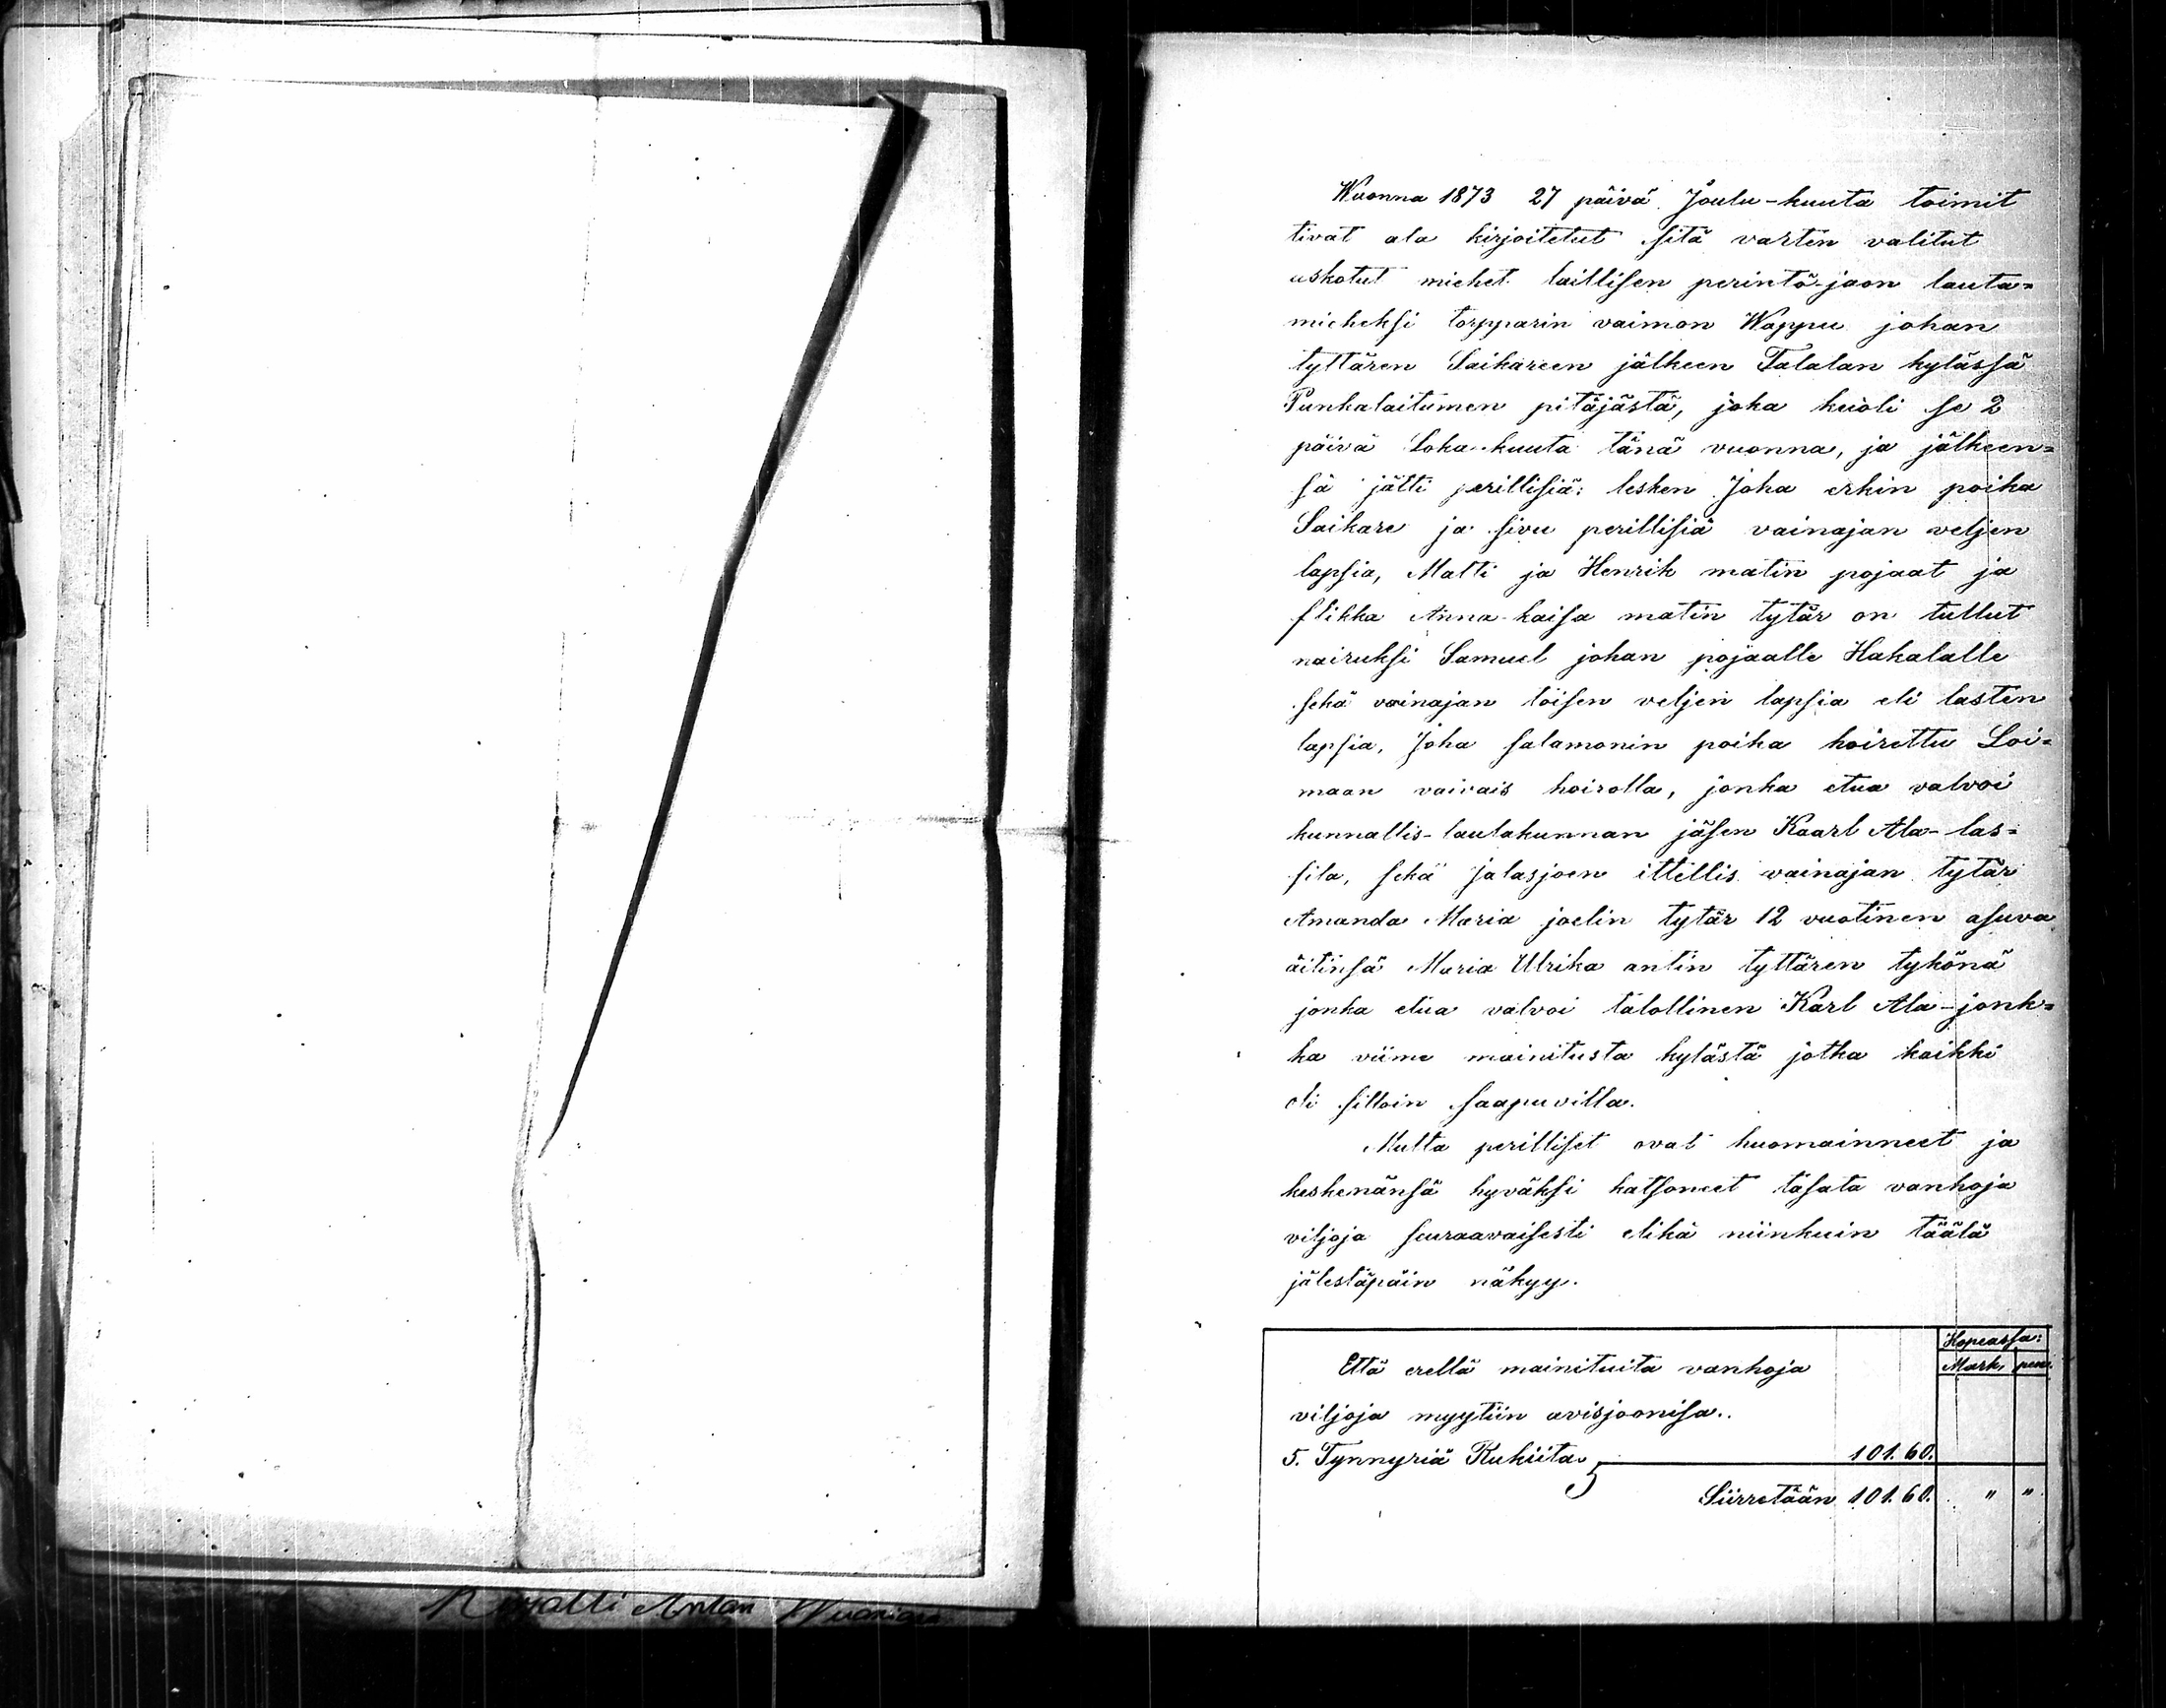 Wuonna 1873 27 päivä Joulu-kuuta toimit
tivat ala kirjoitetut sitä varten valitut
uskotut miehet laillisen perintö-jaon lauta=
mieheksi torpparin vaimon Wappu johan
tyttären Saikareen jälkeen Talalan kylässä
Punkalaitumen pitäjästä, joka kuoli se 2
päivä Loka-kuuta tänä vuonna, ja jälkeen=
sä jätti perillisiä: lesken Joha erkin poika
Saikare ja sivu perillisiä vainajan veljen
lapsia, Matti ja Henrik matin pojaat ja
flikka Anna-kaisa matin tytär on tullut
nairuksi Samuel johan pojaalle Hakalalle
sekä vainajan töisen veljen lapsia eli lasten
lapsia, Joha salamonin poika hoirettu Loi=
maan vaivais hoirolla, jonka etua valvoi
kunnallis-lautakunnan jäsen Kaarl Ala-las=
sila, sekä Jalasjoen ittellis vainajan tytär
Amanda Maria joelin tytär 12 vuotinen asuva
äitinsä Maria Ulrika antin tyttären tykönä
jonka etua valvoi talollinen Karl Ala-jonk=
ka viime mainitusta kylästä jotka kaikki
oli silloin saapuvilla.
Mutta perilliset ovat huomainneet ja
keskenänsä hyväksi katsoneet tasata vanhoja
viljoja seuraavaisesti elikä niinkuin täälä
jälestäpäin näkyy.
Hopeassa:
Mark. pen.
Että erellä mainituita vanhoja
viljoja myytiin avisjoonisa.
5. Tynnyriä Rukiita 101.60.
Siirretään 101.60. " "
Antan